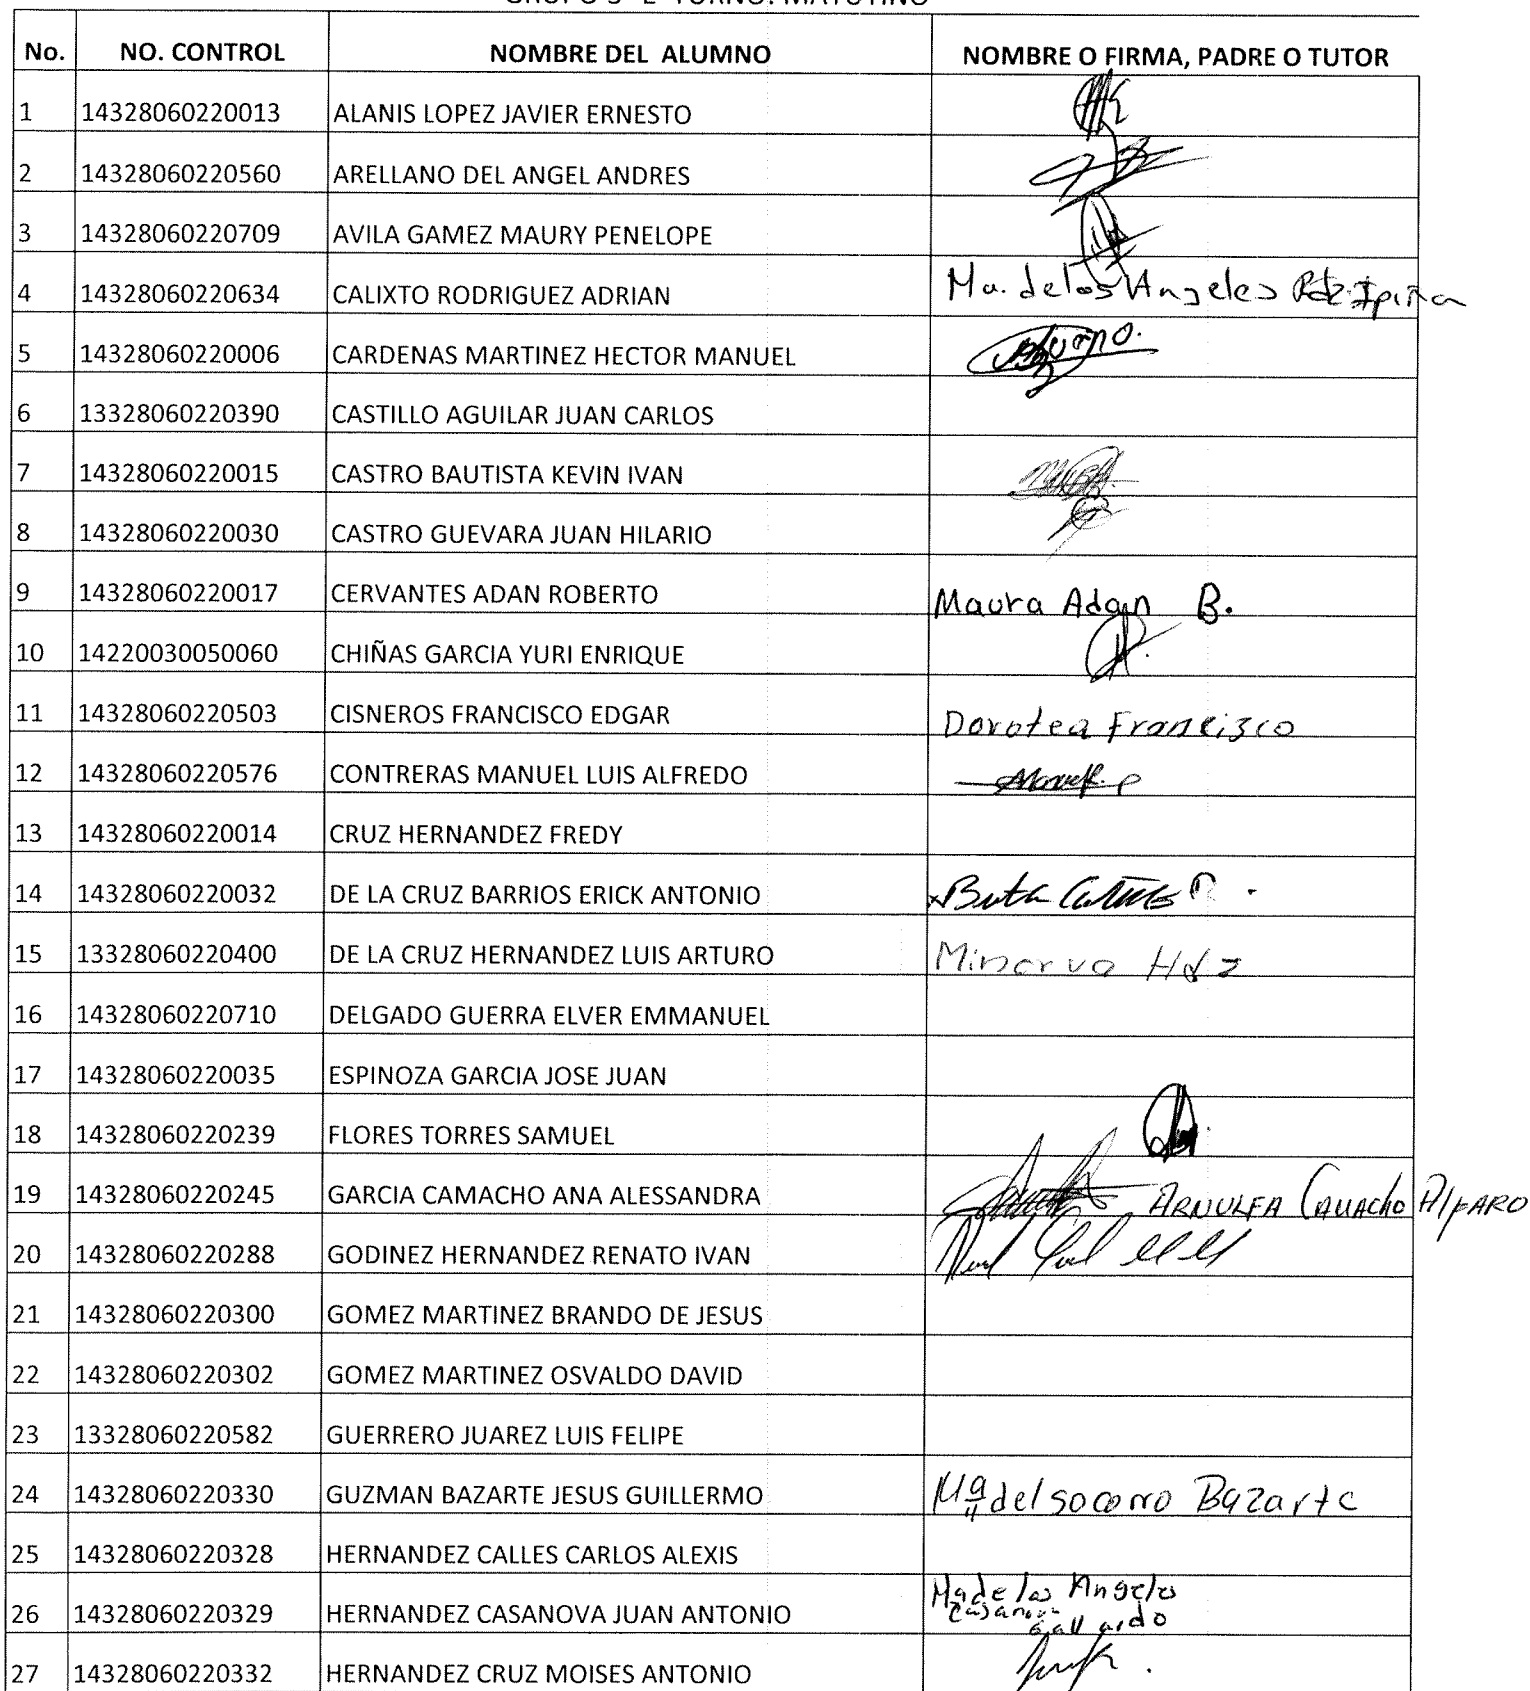 No. NO. CONTROL NOMBRE DEL ALUMNO NOMBRE O FIRMA, PADRE O TUTOR
1 14328060220013 ALANIS LOPEZ JAVIER ERNESTO
2 14328060220560 ARELLANO DEL ANGEL ANDRES
3 14328060220709 AVILA GAMEZ MAURY PENELOPE
4 14328060220634 CALIXTO RODRIGUEZ ADRIAN Ma. de los Angeles Rdz Ipiña
5 14328060220006 CARDENAS MARTINEZ HECTOR MANUEL
6 13328060220390 CASTILLO AGUILAR JUAN CARLOS
7 14328060220015 CASTRO BAUTISTA KEVIN IVAN
8 14328060220030 CASTRO GUEVARA JUAN HILARIO
9 14328060220017 CERVANTES ADAN ROBERTO Maura Adan B.
10 14220030050060 CHIÑAS GARCIA YURI ENRIQUE
11 14328060220503 CISNEROS FRANCISCO EDGAR Dorotea Francisco
12 14328060220576 CONTRERAS MANUEL LUIS ALFREDO
13 14328060220014 CRUZ HERNANDEZ FREDY
14 14328060220032 DE LA CRUZ BARRIOS ERICK ANTONIO
15 13328060220400 DE LA CRUZ HERNANDEZ LUIS ARTURO Minerva Hdz
16 14328060220710 DELGADO GUERRA ELVER EMMANUEL
17 14328060220035 ESPINOZA GARCIA JOSE JUAN
18 14328060220239 FLORES TORRES SAMUEL
19 14328060220245 GARCIA CAMACHO ANA ALESSANDRA ARNULFA CAMACHO AlfARO
20 14328060220288 GODINEZ HERNANDEZ RENATO IVAN
21 14328060220300 GOMEZ MARTINEZ BRANDO DE JESUS
22 14328060220302 GOMEZ MARTINEZ OSVALDO DAVID
23 13328060220582 GUERRERO JUAREZ LUIS FELIPE
24 14328060220330 GUZMAN BAZARTE JESUS GUILLERMO Ma del socorro Bazarte
25 14328060220328 HERNANDEZ CALLES CARLOS ALEXIS
26 14328060220329 HERNANDEZ CASANOVA JUAN ANTONIO Ma de los Angeles
Casanova
Gallardo
27 14328060220332 HERNANDEZ CRUZ MOISES ANTONIO